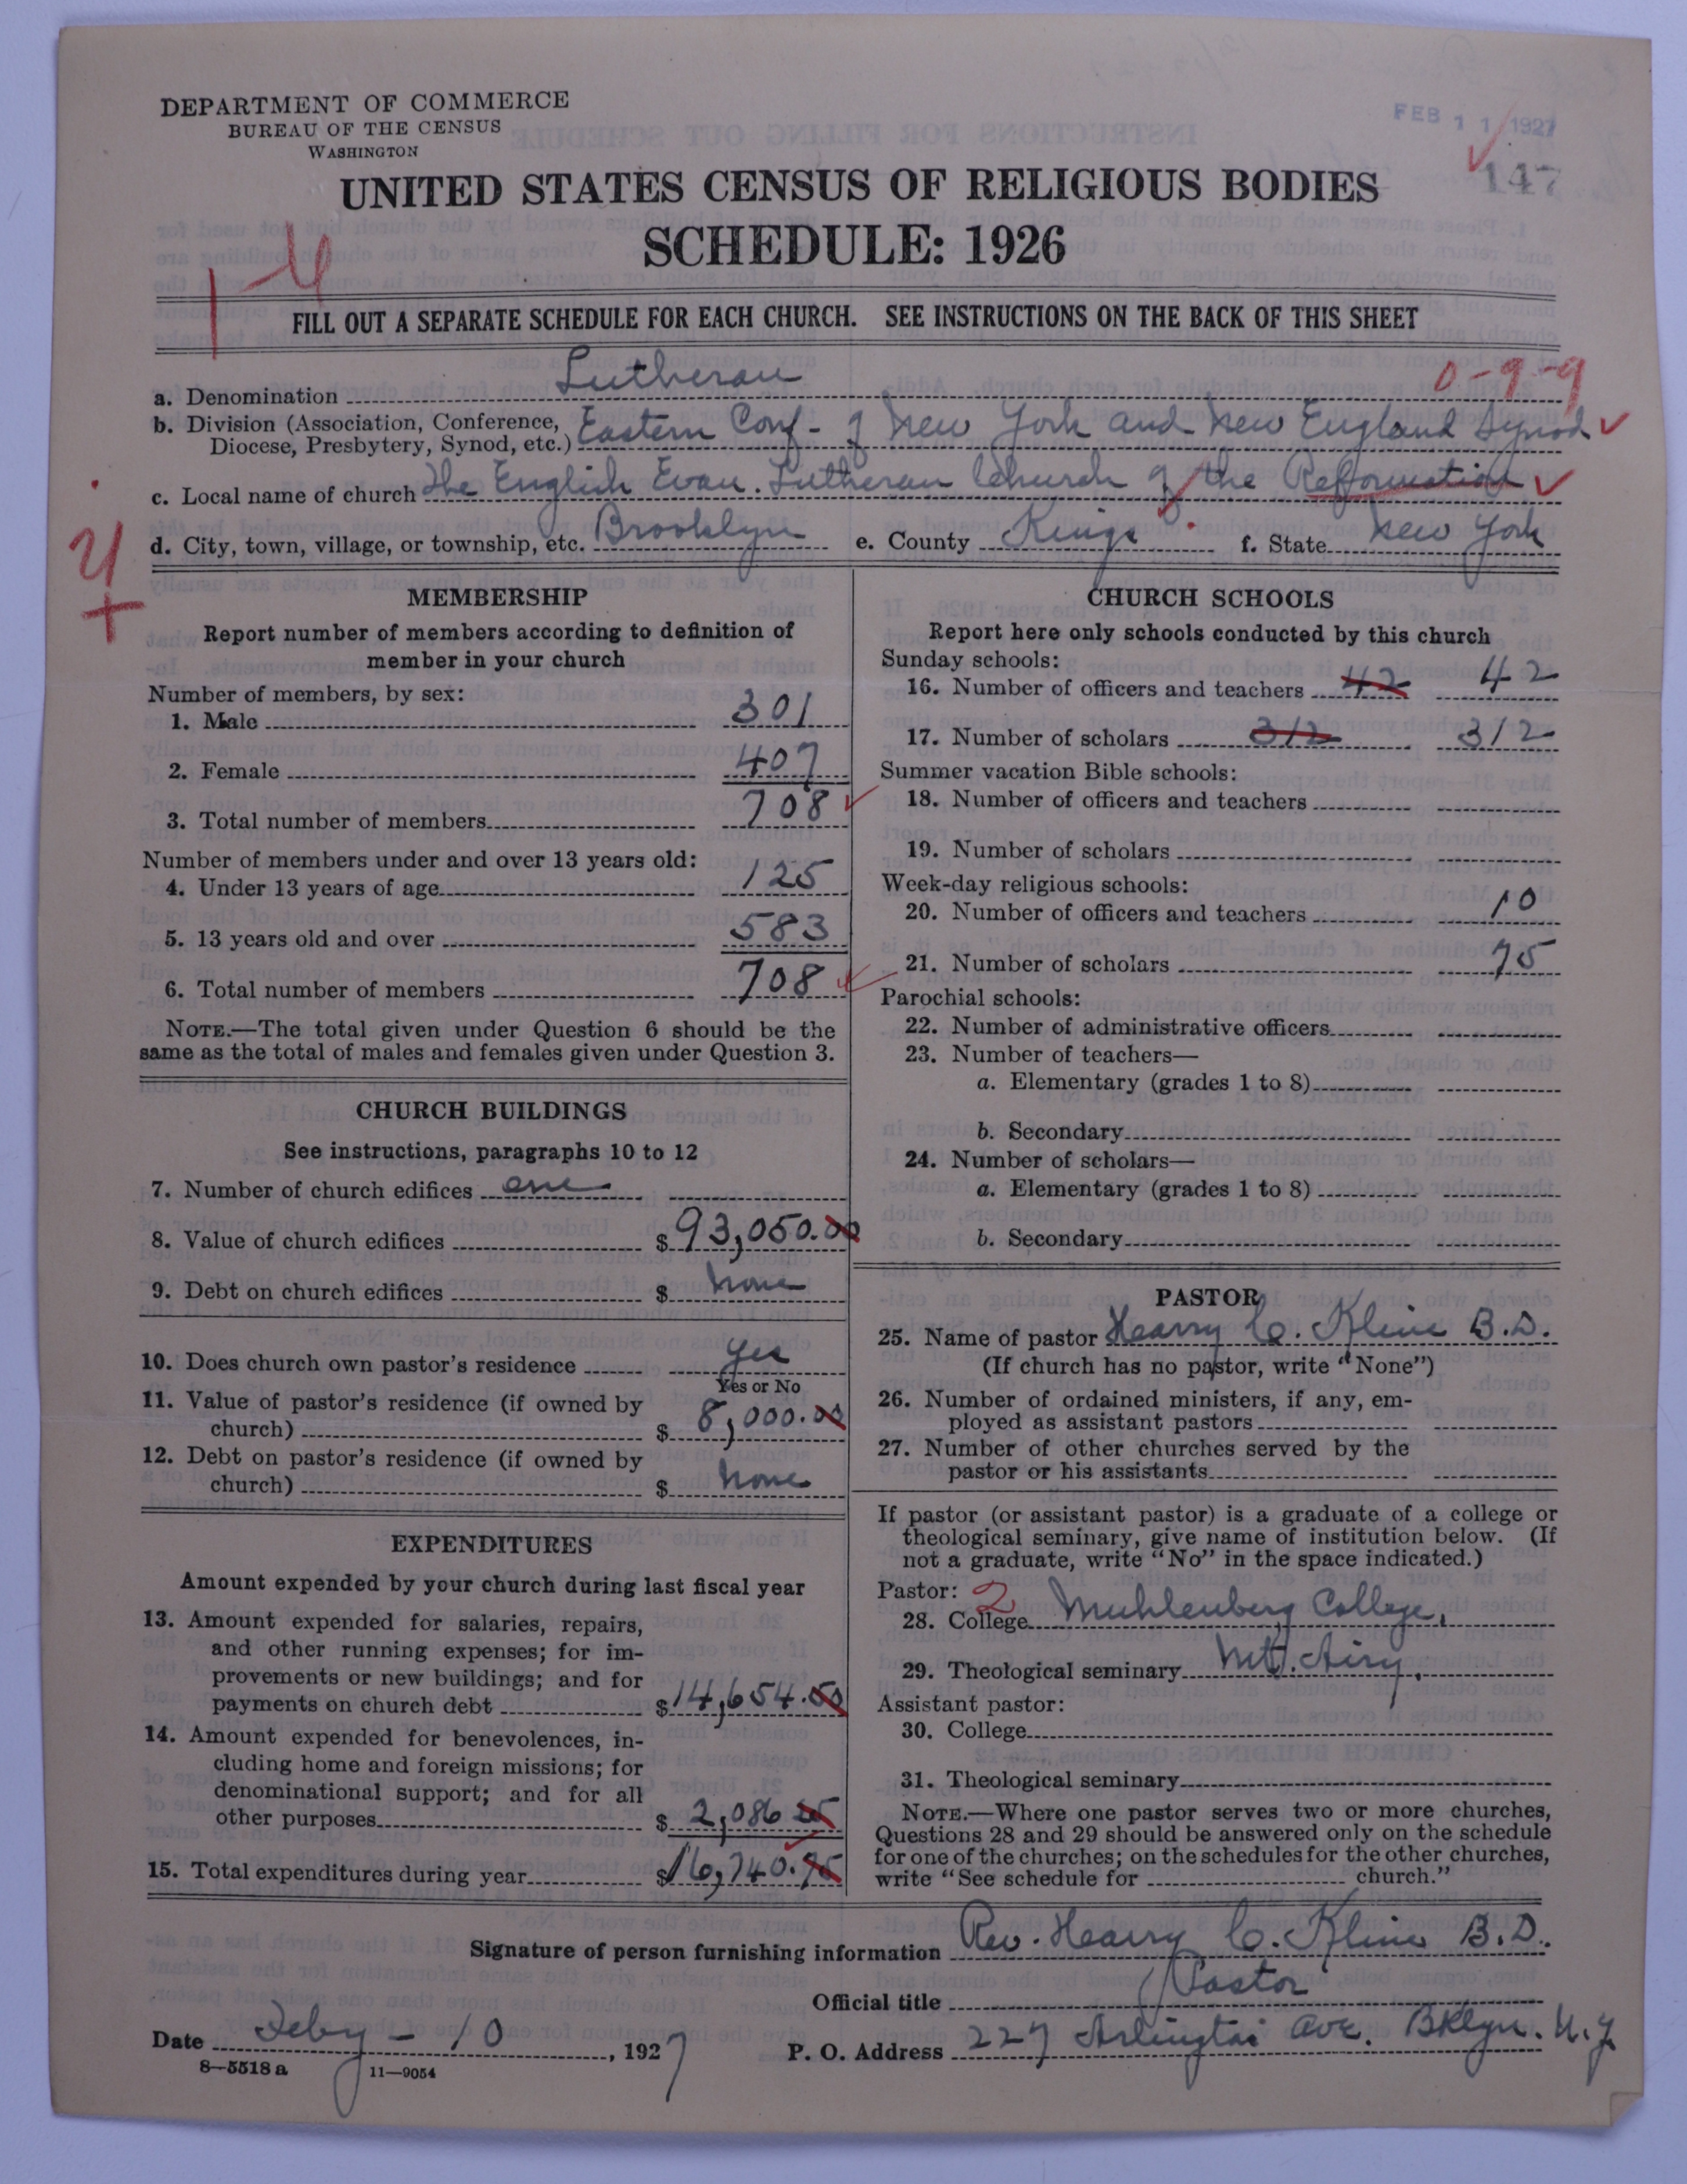 DEPARTMENT OF COMMERCE
BUREAU OF THE CENSUS
WASHINGTON
FEB 11 1927
147
UNITED STATES CENSUS OF RELIGIOUS BODIES
SCHEDULE: 1926
FILL OUT A SEPARATE SCHEDULE FOR EACH CHURCH. SEE INSTRUCTIONS ON THE BACK OF THIS SHEET
0-9-9
a. Denomination Lutheran
b. Division (Association, Conference, Diocese, Presbytery, Synod, etc.) Eastern Conf - of New York and New England Synod
c. Local name of church The English Evan. Lutheran Church of the Reformation
d. City, town, village, or township, etc. Brooklyn e. County Kings f. State New York
MEMBERSHIP
Report number of members according to definition of
member in your church
Number of members, by sex:
1. Male 301
2. Female 407
3. Total number of members 708
Number of members under and over 13 years old:
4. Under 13 years of age 125
5. 13 years old and over 583
6. Total number of members 708
NOTE.—The total given under Question 6 should be the
same as the total of males and females given under Question 3.
CHURCH BUILDINGS
See instructions, paragraphs 10 to 12
7. Number of church edifices one
8. Value of church edifices $ 93,050.00
9. Debt on church edifices $ None
10. Does church own pastor's residence Yes
Yes or No
11. Value of pastor's residence (if owned by
church) $ 8,000.00
12. Debt on pastor's residence (if owned by
church) $ None
EXPENDITURES
Amount expended by your church during last fiscal year
13. Amount expended for salaries, repairs,
and other running expenses; for im-
provements or new buildings; and for
payments on church debt $ 14,654.50
14. Amount expended for benevolences, in-
cluding home and foreign missions; for
denominational support; and for all
other purposes $ 2,086
15. Total expenditures during year $ 16,740.75
CHURCH SCHOOLS
Report here only schools conducted by this church
Sunday schools:
16. Number of officers and teachers 42 42
17. Number of scholars 312 312
Summer vacation Bible schools:
18. Number of officers and teachers
19. Number of scholars
Week-day religious schools:
20. Number of officers and teachers 10
21. Number of scholars 75
Parochial schools:
22. Number of administrative officers
23. Number of teachers—
a. Elementary (grades 1 to 8)
b. Secondary
24. Number of scholars—
a. Elementary (grades 1 to 8)
b. Secondary
PASTOR
25. Name of pastor Harry C. Kline B.D.
(If church has no pastor, write "None")
26. Number of ordained ministers, if any, em-
ployed as assistant pastors
27. Number of other churches served by the
pastor or his assistants
If pastor (or assistant pastor) is a graduate of a college or
theological seminary, give name of institution below. (If
not a graduate, write "No" in the space indicated.)
Pastor: 2
28. College Muhlenberg College.
29. Theological seminary Mt. Airy.
Assistant pastor:
30. College
31. Theological seminary
NOTE.—Where one pastor serves two or more churches,
Questions 28 and 29 should be answered only on the schedule
for one of the churches; on the schedules for the other churches,
write "See schedule for church."
Signature of person furnishing information Rev. Harry C. Kline B.D.
Official title Pastor
Date Feby - 10, 1927 P. O. Address 227 Arlington Ave. Bklyn. N.Y.
8—5518 a 11—9054